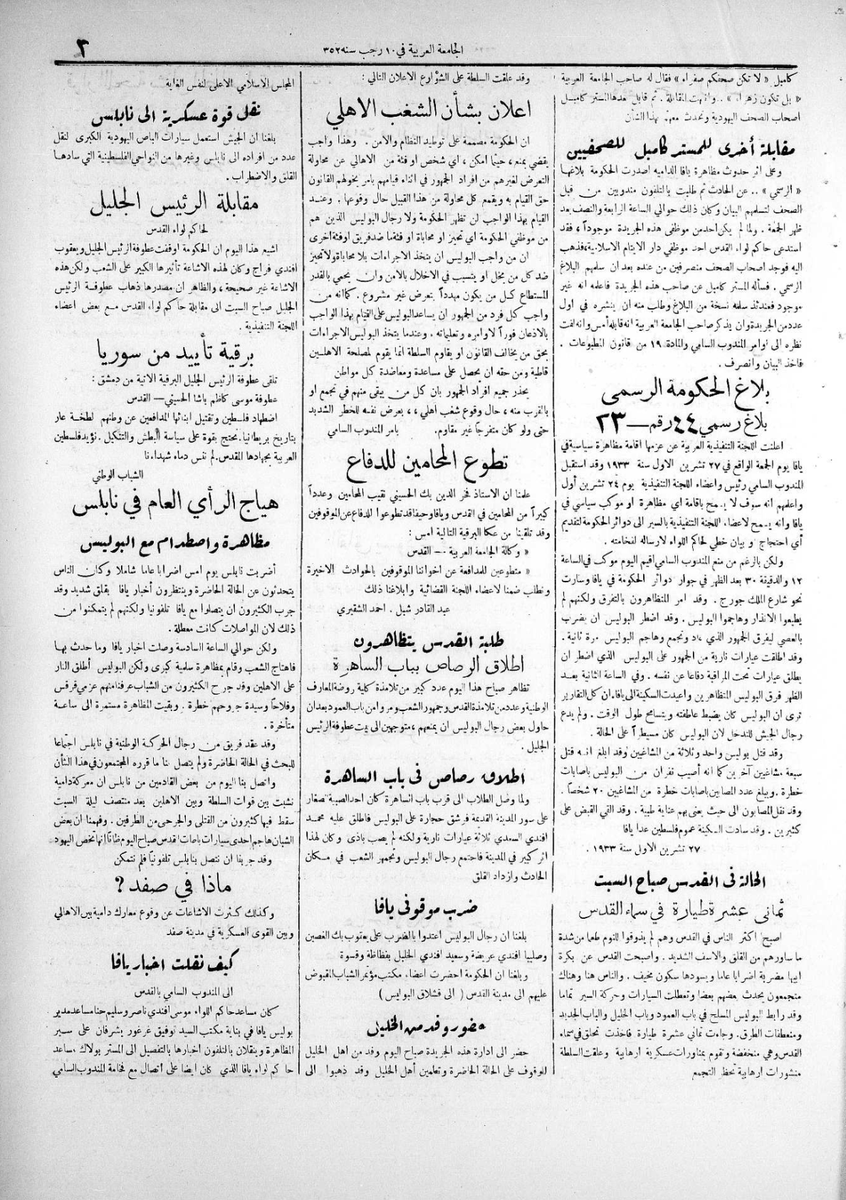 الجامعة العربية في ١٠ رجب سنة ١٣٥٢
٣
كامبل « لا تكن صحفكم صفراء » فقال له صاحب الجامعة العربية
« بل تكون زهراء » .. وانتهت المقابلة . ثم قابل بعدها المستر كامبل
اصحاب الصحف اليهودية وتحدث معهم بهذا الشأن
مقابلة أخرى للمستر كامبل للصحفيين
وعلى اثر حدوث مظاهرة يافا الداميه اصدرت الحكومة بلاغها
« الرسمي » .. عن الحادث ثم طلبت بالتلفون مندوبين من قبل
الصحف لتسلمهم البيان وكان ذلك حوالي الساعة الرابعة والنصف بعد
ظهر الجمعة . ولما لم يكن احد من موظفي هذه الجريدة موجوداً ، فقد
استدعى حاكم لواء القدس احد موظفي دار الايتام الاسلامية ، فذهب
اليه فوجد اصحاب الصحف منصرفين من عنده بعد ان سلمهم البلاغ
الرسمي . فسأله المستر كامبل عن صاحب هذه الجريدة فاعلمه انه غير
موجود فعندئذ سلمه نسخة من البلاغ وطلب منه ان ينشره في اول
عدد من الجريدة وان يذكر صاحب الجامعة العربية انه قابله أمس وانه لفت
نظره الى اوامر المندوب السامي والمادة ١٩ من قانون المطبوعات .
فاخذ البيان وانصرف .
بلاغ الحكومة الرسمي
بلاغ رسمي رقم — ٢٣ ٤٤
اعلنت اللجنة التنفيذية العربية عن عزمها اقامة مظاهرة سياسية في
يافا يوم الجمعة الواقع في ٢٧ تشرين الاول سنة ١٩٣٣ وقد استقبل
المندوب السامي رئيس واعضاء اللجنة التنفيذية يوم ٢٤ تشرين أول
واعلمهم انه سوف لا يسمح باقامة اي مظاهرة او موكب سياسي في
يافا وانه يسمح لاعضاء اللجنة التنفيذية بالسير الى دوائر الحكومة لتقديم
أي احتجاج و بيان خطي لحاكم اللواء لارساله لفخامته .
ولكن بالرغم من منع المندوب السامي اقيم اليوم موكب في الساعة
١٢ والدقيقة ٣٠ بعد الظهر في جوار دوائر الحكومة في يافا وسارت
نحو شارع الملك جورج . وقد امر المتظاهرون بالتفرق ولكنهم لم
يطيعوا الانذار وهاجموا البوليس . وقد اضطر البوليس ان يضرب
بالعصي ليفرق الجمهور الذي عاد وتجمع وهاجم البوليس مرة ثانية .
وقد اطلقت عيارات نارية من الجمهور على البوليس الذي اضطر ان
يطلق عيارات تحت المراقبة دفاعا عن نفسه . وفي الساعة الثانية بعد
الظهر فرق البوليس المتظاهرين واعيدت السكينة الى يافا . ان كل التقارير
ترى ان البوليس كان يضبط عاطفته ويتسامح طول الوقت . ولم يدع
رجال الجيش للتدخل لان البوليس كان مسيطراً على الحالة .
وقد قتل بوليس واحد وثلاثة من المشاغبين وقد ابلغ انه قتل
سبعة مشاغبين آخرين كما انه أصيب نفران من البوليس باصابات
خطرة . ويبلغ عدد المصابين باصابات خطرة من المشاغبين ٢٠ شخصاً .
وقد نقل المصابون الى حيث يعنى بهم عناية طبية . وقد القي القبض على
كثيرين . وقد سادت السكينة عموم فلسطين عدا يافا
٢٧ تشرين الاول سنة ١٩٣٣ .
الحالة في القدس صباح السبت
ثماني عشرة طيارة في سماء القدس
اصبح اكثر الناس في القدس وهم لم يذوقوا للنوم طعما من شدة
ما ساورهم من القلق والاسف الشديد . واصبحت القدس عن بكرة
ابيها مضربة اضرابا عاما ويسودها سكون مخيف . والناس هنا وهناك
متجمعون يحدث بعضهم بعضا وتعطلت السيارات وحركة السير تماما
وقد رابط البوليس المسلح في باب العمود وباب الخليل والباب الجديد
ومنعطفات الطرق . وجاءت ثماني عشرة طيارة فاخذت تحلق في سماء
القدس وهي منخفضة وتقوم بمناورات عسكرية ارهابية وعلقت السلطة
منشورات ارهابية بحظر التجمع
وقد علقت السلطة على الشوارع الاعلان التالي :
اعلان بشأن الشغب الاهلي
ان الحكومة مصممة على توطيد النظام والامن . وهذا واجب
يقضي بمنع ، حيثما امكن ، اي شخص او فئة من الاهالي عن محاولة
التعرض لغيرهم من افراد الجمهور في اثناء قيامهم بامر يخولهم القانون
حق القيام به وبقمع كل محاولة من هذا القبيل حال وقوعها . وعند
القيام بهذا الواجب لن تظهر الحكومة ولا رجال البوليس الذين هم
من موظفي الحكومة اي تحيز او محاباة او فئة ما ضد فريق او فئة اخرى
ان من واجب البوليس ان يتخذ الاجراءات بلا محاباة ولا تحيز
ضد كل من يخل او يتسبب في الاخلال بالامن وان يحمي بالقدر
المستطاع كل من يكون مهدداً بتعرض غير مشروع . كما انه من
واجب كل فرد من الجمهور ان يساعد البوليس على القيام بهذا الواجب
بالاذعان فوراً لاوامره وتعليماته . وعندما يتخذ البوليس الاجراءات
بحق من يخالف القانون او يقاوم السلطة انما يقوم لمصلحة الاهلين
قاطبة ومن حقه ان يحصل على مساعدة ومعاضدة كل مواطن
يحذر جميع أفراد الجمهور بان كل من يبقى منهم في تجمع او
بالقرب منه ، حال وقوع شغب أهلي ، ، يعرض نفسه للخطر الشديد
حتى ولو كان متفرجا غير مقاوم . بامر المندوب السامي
تطوع المحامين للدفاع
علمنا ان الاستاذ فخر الدين بك الحسيني نقيب المحامين وعدداً
كبيراً من المحامين في القدس ويافا وحيفا قد تطوعوا للدفاع عن الموقوفين
وقد تلقينا من عكا البرقية التالية امس :
« وكالة الجامعة العربية — القدس
« متطوعين للمدافعة عن اخواننا الموقوفين بالحوادث الاخيرة
ونطلب ضمنا لاعضاء اللجنة القضائية وابلاغنا ذلك
عبد القادر شبل . احمد الشقيري
طلبة القدس يتظاهرون
اطلاق الرصاص بباب الساهرة
تظاهر صباح هذا اليوم عدد كبير من تلامذة كلية روضة المعارف
الوطنية وعدد من تلامذة القدس وجمهور الشعب ومروا من باب العمود بعد ان
حاول بعض رجال البوليس ان يمنعهم ، متوجهين الى بيت عطوفة الرئيس
الجليل .
اطلاق رصاص في باب الساهرة
ولما وصل الطلاب الى قرب باب الساهرة كان احد الصبية صغار
على سور المدينة القديمة فرشق حجارة على البوليس فاطلق عليه محمد
افندي السعدي ثلاثة عيارات نارية ولكنه لم يصب باذى وكان لهذا
اثر كبير في المدينة فاجتمع رجال البوليس وتجمهر الشعب في مكان
الحادث وازداد القلق
ضرب موقوفي يافا
بلغنا ان رجال البوليس اعتدوا بالضرب على يعقوب بك الغصين
وصليبا افندي عريضة وسعيد افندي الخليل بفظاظة وقسوة
وبلغنا ان الحكومة احضرت اعضاء مكتب مؤتمر الشباب المقبوض
عليهم الى مدينة القدس ( الى قشلاق البوليس )
حضور وفد من الخليل
حضر الى ادارة هذه الجريدة صباح اليوم وفد من اهل الخليل
للوقوف على الحالة الحاضرة وتعلمين أهل الخليل وقد ذهبوا الى
المجلس الاسلامي الاعلى لنفس الغاية
نقل قوة عسكرية الى نابلس
بلغنا ان الجيش استعمل سيارات الباص اليهودية الكبرى لنقل
عدد من افراده الى نابلس وغيرها من النواحي الفلسطينية التي سادها
القلق والاضطراب .
مقابلة الرئيس الجليل
لحاكم لواء القدس
اشيع هذا اليوم ان الحكومة اوقفت عطوفة الرئيس الجليل ويعقوب
أفندي فراج وكان لهذه الاشاعة تأثيرها الكبير على الشعب ولكن هذه
الاشاعة غير صحيحة ، والظاهر ان مصدرها ذهاب عطوفة الرئيس
الجليل صباح السبت الى مقابلة حاكم لواء القدس مع بعض اعضاء
اللجنة التنفيذية .
برقية تأييد من سوريا
تلقى عطوفة الرئيس الجليل البرقية الاتية من دمشق :
عطوفة موسى كاظم باشا الحسيني — القدس
اضطهاد فلسطين وتقتيل ابنائها المدافعين عن وطنهم لطخة عار
بتاريخ بريطانيا . نحتج بقوة على سياسة البطش والتنكيل . نؤيد فلسطين
العربية بجهادها المقدس . لم نفس دماء شهداءنا
الشباب الوطني
هياج الرأي العام في نابلس
مظاهرة واصطدام مع البوليس
أضربت نابلس يوم امس اضرابا عاما شاملا وكان الناس
يتحدثون عن الحالة الحاضرة وينتظرون أخبار يافا بقلق شديد وقد
جرب الكثيرون ان يتصلوا مع يافا تلفونيا ولكنهم لم يتمكنوا من
ذلك لان المواصلات كانت معطلة .
ولكن حوالي الساعة السادسة وصلت اخبار يافا وما حدث بها
فاهتاج الشعب وقام بمظاهرة سلمية كبرى ولكن البوليس أطلق النار
على الاهلين وقد جرح الكثيرون من الشباب عرفنا منهم عزمي قرقس
وفلاحا وسيدة جروحهم خطرة . وبقيت المظاهرة مستمرة الى ساعة
متأخرة .
وقد عقد فريق من رجال الحركة الوطنية في نابلس اجتماعا
للبحث في الحالة الحاضرة ولم يتصل بنا ما قرره المجتمعون في هذا الشأن
واتصل بنا اليوم من بعض القادمين من نابلس ان معركة دامية
نشبت بين قوات السلطة وبين الاهلين بعد منتصف ليلة السبت
سقط فيها كثيرون من القتلى والجرحى من الطرفين . وفهمنا ان بعض
الشبان هاجم احدى سيارات باصات القدس صباح اليوم ظانا انها تخص اليهود
وقد جربنا ان نتصل بنابلس تلفونيا فلم نتمكن
ماذا في صفد ؟
وكذلك كثرت الاشاعات عن وقوع معارك دامية بين الاهالي
وبين القوى العسكرية في مدينة صفد
كيف نقلت اخبار يافا
الى المندوب السامي بالقدس
كان مساعد حاكم اللواء موسى أفندي ناصر وسليم حنا مساعد مدير
بوليس يافا في بناية مكتب السيد توفيق غرغور يشرفان على سير
المظاهرة وينقلان بالتلفون أخبارها بالتفصيل الى المستر بولاك . مساعد
حاكم لواء يافا الذي كان ايضا على أتصال مع فخامة المندوب السامي